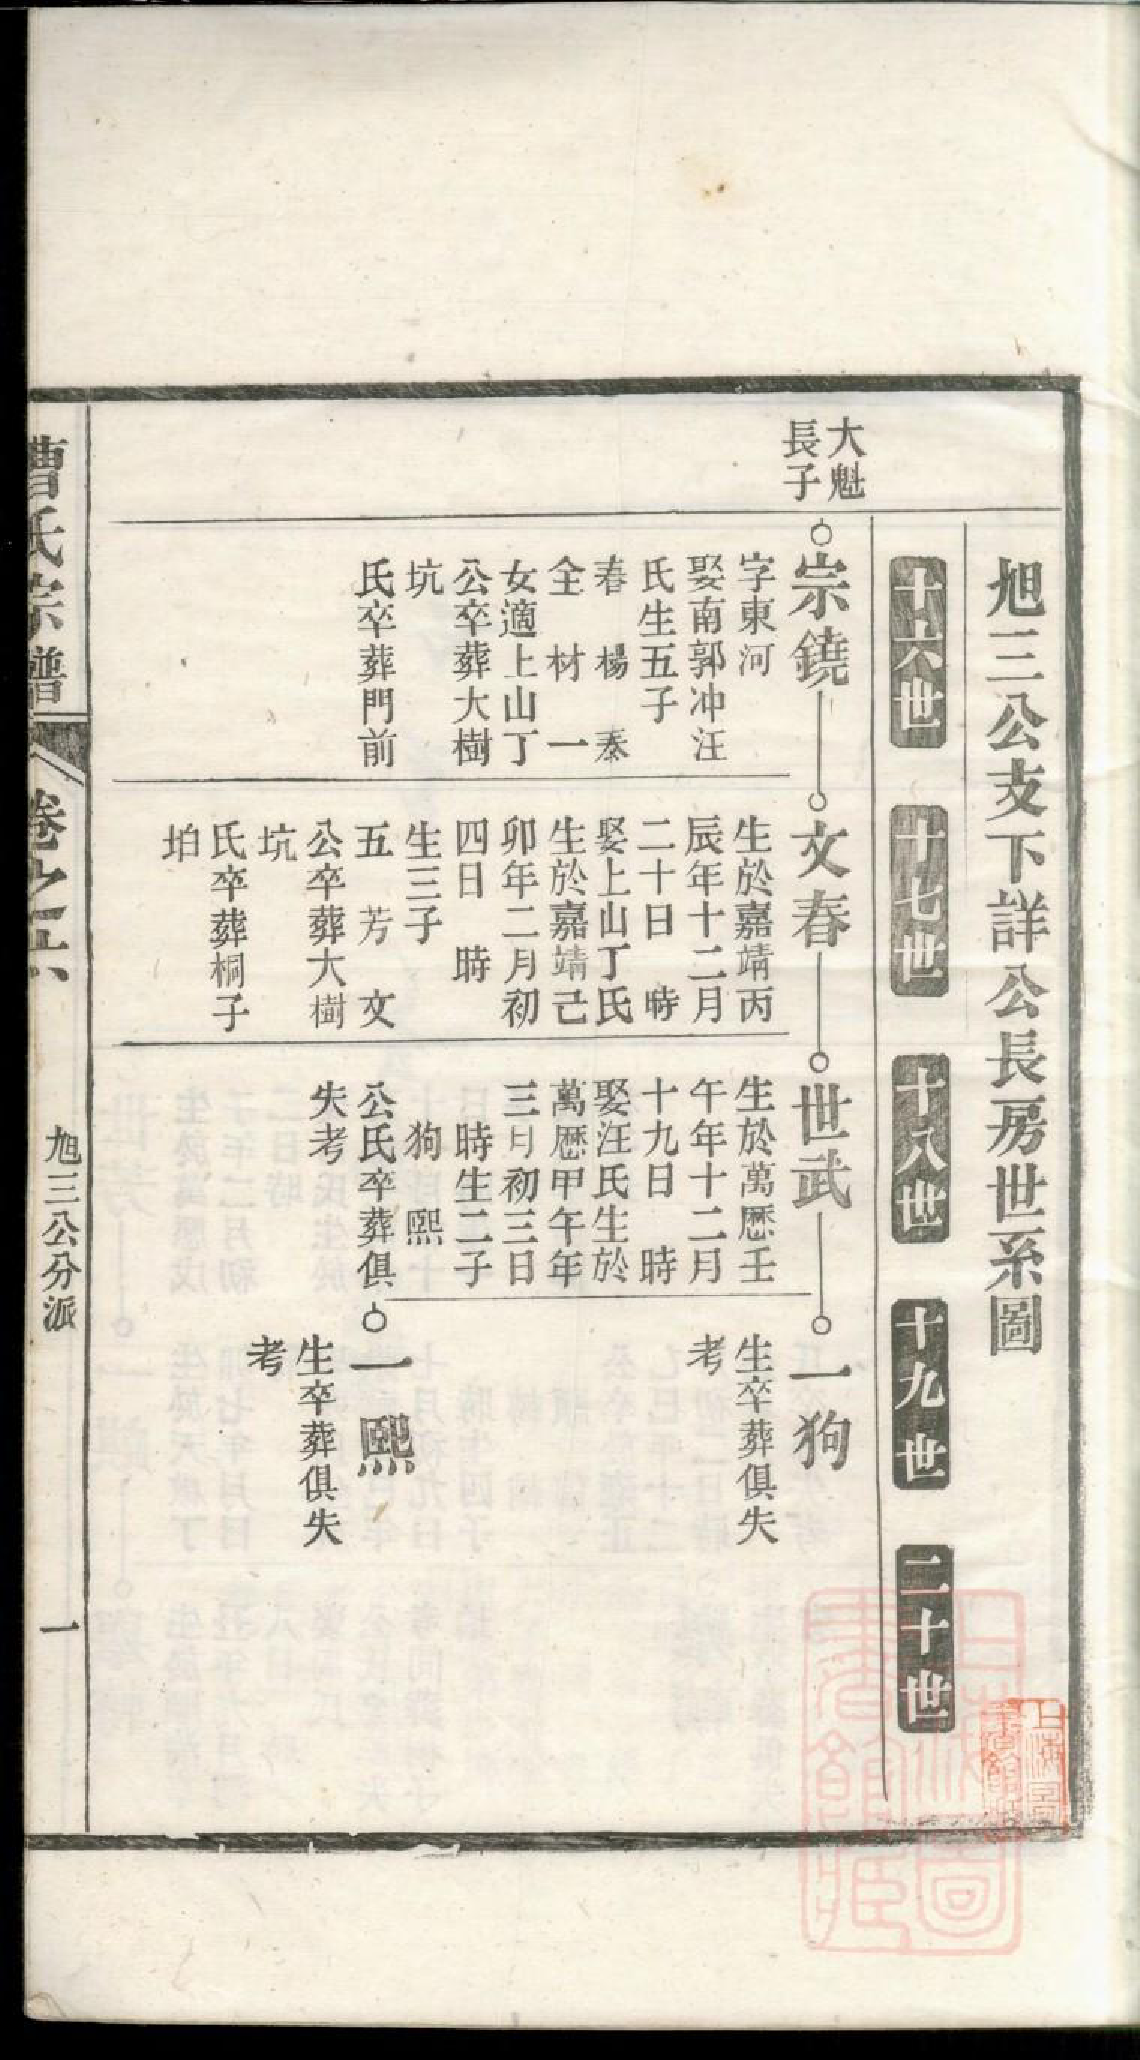 旭三公支下詳公長房世系圖
十六世
十七世
十八世
十九世
二十世
大魁
長子
宗鐃
字東河
娶南郭冲汪
氏生五子
春 楊 泰
全 材 一
女適上山丁
公卒葬大樹
坑
氏卒葬門前
文春
生於嘉靖丙
辰年十二月
二十日 時
娶上山丁氏
生於嘉靖己
卯年二月初
四日 時
生三子
五 芳 文
公卒葬大樹
坑
氏卒葬桐子
垍
世武
生於萬歷壬
午年十二月
十九日 時
娶汪氏生於
萬歷甲午年
三月初三日
時生二子
狗 熙
公氏卒葬俱
失考
一狗
生卒葬俱失
考
一熙
生卒葬俱失
考
曹氏宗譜
卷之六
旭三公分派
一
上海圖
書館藏